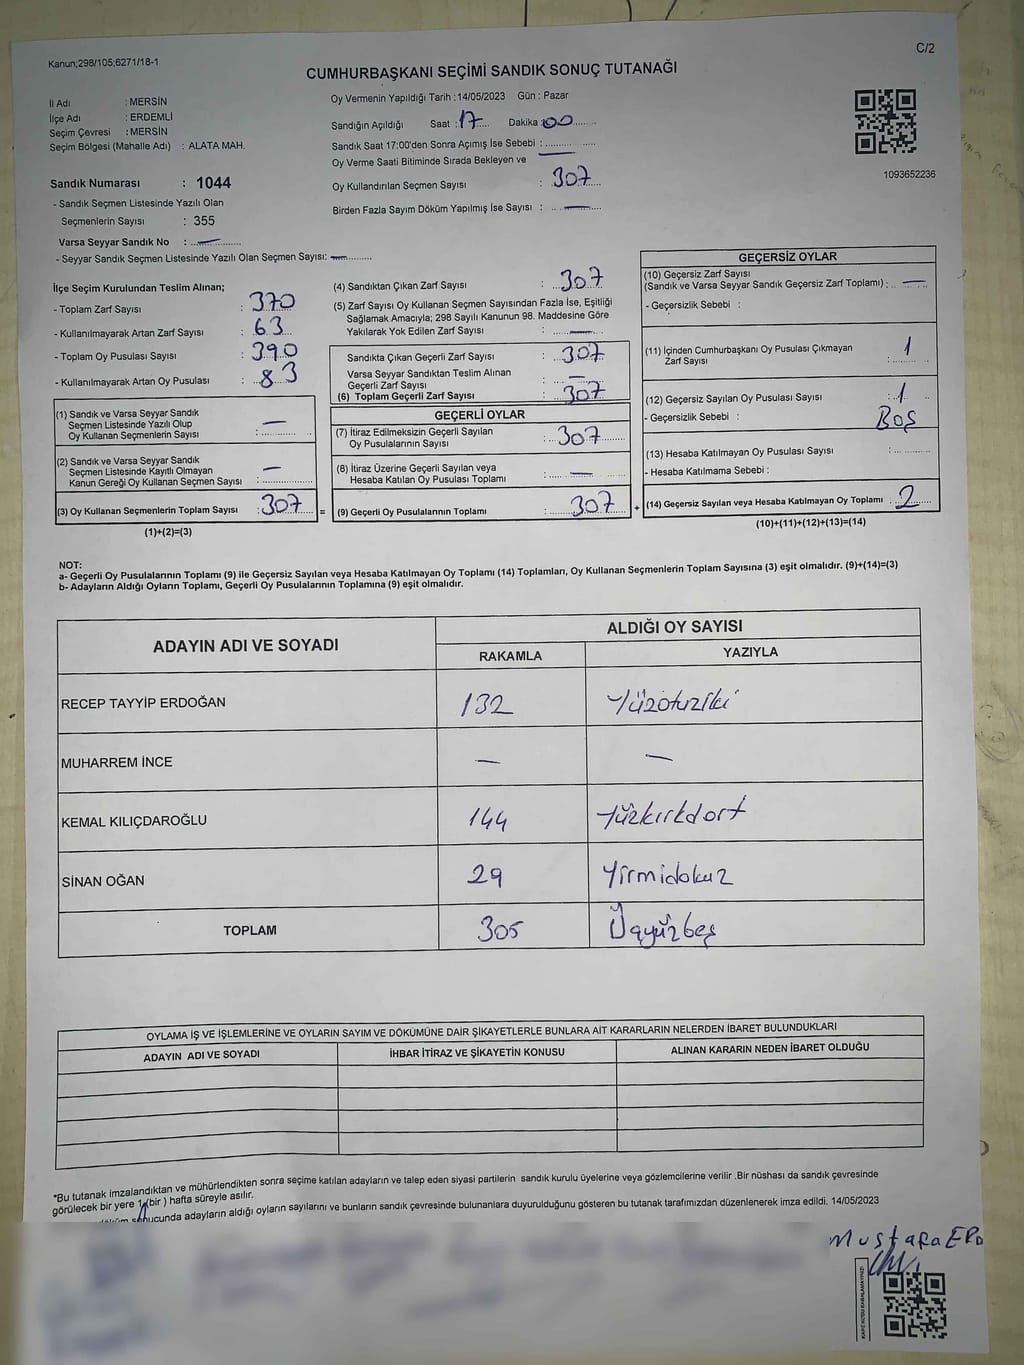 Kanun;298/105;6271/18-1
C/2
CUMHURBAŞKANI SEÇİMİ SANDIK SONUÇ TUTANAĞI
İl Adı : MERSİN
İlçe Adı : ERDEMLİ
Seçim Çevresi : MERSİN
Seçim Bölgesi (Mahalle Adı) : ALATA MAH.
Oy Vermenin Yapıldığı Tarih :14/05/2023 Gün : Pazar
Sandığın Açıldığı Saat : 17 Dakika : 00
Sandık Saat 17:00'den Sonra Açımış İse Sebebi :
Oy Verme Saati Bitiminde Sırada Bekleyen ve —
Oy Kullandırılan Seçmen Sayısı : 307
Birden Fazla Sayım Döküm Yapılmış İse Sayısı : —
1093652236
Sandık Numarası : 1044
- Sandık Seçmen Listesinde Yazılı Olan
Seçmenlerin Sayısı : 355
Varsa Seyyar Sandık No : —
- Seyyar Sandık Seçmen Listesinde Yazılı Olan Seçmen Sayısı: —
İlçe Seçim Kurulundan Teslim Alınan;
- Toplam Zarf Sayısı : 370
- Kullanılmayarak Artan Zarf Sayısı : 63
- Toplam Oy Pusulası Sayısı : 390
- Kullanılmayarak Artan Oy Pusulası : 83
(1) Sandık ve Varsa Seyyar Sandık
Seçmen Listesinde Yazılı Olup
Oy Kullanan Seçmenlerin Sayısı : —
(2) Sandık ve Varsa Seyyar Sandık
Seçmen Listesinde Kayıtlı Olmayan
Kanun Gereği Oy Kullanan Seçmen Sayısı : —
(3) Oy Kullanan Seçmenlerin Toplam Sayısı : 307 =
(1)+(2)=(3)
(4) Sandıktan Çıkan Zarf Sayısı : 307
(5) Zarf Sayısı Oy Kullanan Seçmen Sayısından Fazla İse, Eşitliği
Sağlamak Amacıyla; 298 Sayılı Kanunun 98. Maddesine Göre
Yakılarak Yok Edilen Zarf Sayısı : —
Sandıkta Çıkan Geçerli Zarf Sayısı : 307
Varsa Seyyar Sandıktan Teslim Alınan
Geçerli Zarf Sayısı : —
(6) Toplam Geçerli Zarf Sayısı : 307
GEÇERLİ OYLAR
(7) İtiraz Edilmeksizin Geçerli Sayılan
Oy Pusulalarının Sayısı : 307
(8) İtiraz Üzerine Geçerli Sayılan veya
Hesaba Katılan Oy Pusulası Toplamı : —
(9) Geçerli Oy Pusulalarının Toplamı : 307 +
GEÇERSİZ OYLAR
(10) Geçersiz Zarf Sayısı
(Sandık ve Varsa Seyyar Sandık Geçersiz Zarf Toplamı) : —
- Geçersizlik Sebebi :
(11) İçinden Cumhurbaşkanı Oy Pusulası Çıkmayan
Zarf Sayısı : 1
(12) Geçersiz Sayılan Oy Pusulası Sayısı : 1
- Geçersizlik Sebebi : Boş
(13) Hesaba Katılmayan Oy Pusulası Sayısı :
- Hesaba Katılmama Sebebi :
(14) Geçersiz Sayılan veya Hesaba Katılmayan Oy Toplamı : 2
(10)+(11)+(12)+(13)=(14)
NOT:
a- Geçerli Oy Pusulalarının Toplamı (9) ile Geçersiz Sayılan veya Hesaba Katılmayan Oy Toplamı (14) Toplamları, Oy Kullanan Seçmenlerin Toplam Sayısına (3) eşit olmalıdır. (9)+(14)=(3)
b- Adayların Aldığı Oyların Toplamı, Geçerli Oy Pusulalarının Toplamına (9) eşit olmalıdır.
ADAYIN ADI VE SOYADI ALDIĞI OY SAYISI
RAKAMLA YAZIYLA
RECEP TAYYİP ERDOĞAN 132 Yüzotuziki
MUHARREM İNCE — —
KEMAL KILIÇDAROĞLU 144 Yüzkırkdört
SİNAN OĞAN 29 Yirmidokuz
TOPLAM 305 Üçyüzbeş
OYLAMA İŞ VE İŞLEMLERİNE VE OYLARIN SAYIM VE DÖKÜMÜNE DAİR ŞİKAYETLERLE BUNLARA AİT KARARLARIN NELERDEN İBARET BULUNDUKLARI
ADAYIN ADI VE SOYADI İHBAR İTİRAZ VE ŞİKAYETİN KONUSU ALINAN KARARIN NEDEN İBARET OLDUĞU
*Bu tutanak imzalandıktan ve mühürlendikten sonra seçime katılan adayların ve talep eden siyasi partilerin sandık kurulu üyelerine veya gözlemcilerine verilir .Bir nüshası da sandık çevresinde
görülecek bir yere 1 (bir ) hafta süreyle asılır.
sonucunda adayların aldığı oyların sayılarını ve bunların sandık çevresinde bulunanlara duyurulduğunu gösteren bu tutanak tarafımızdan düzenlenerek imza edildi. 14/05/2023
Mustafa